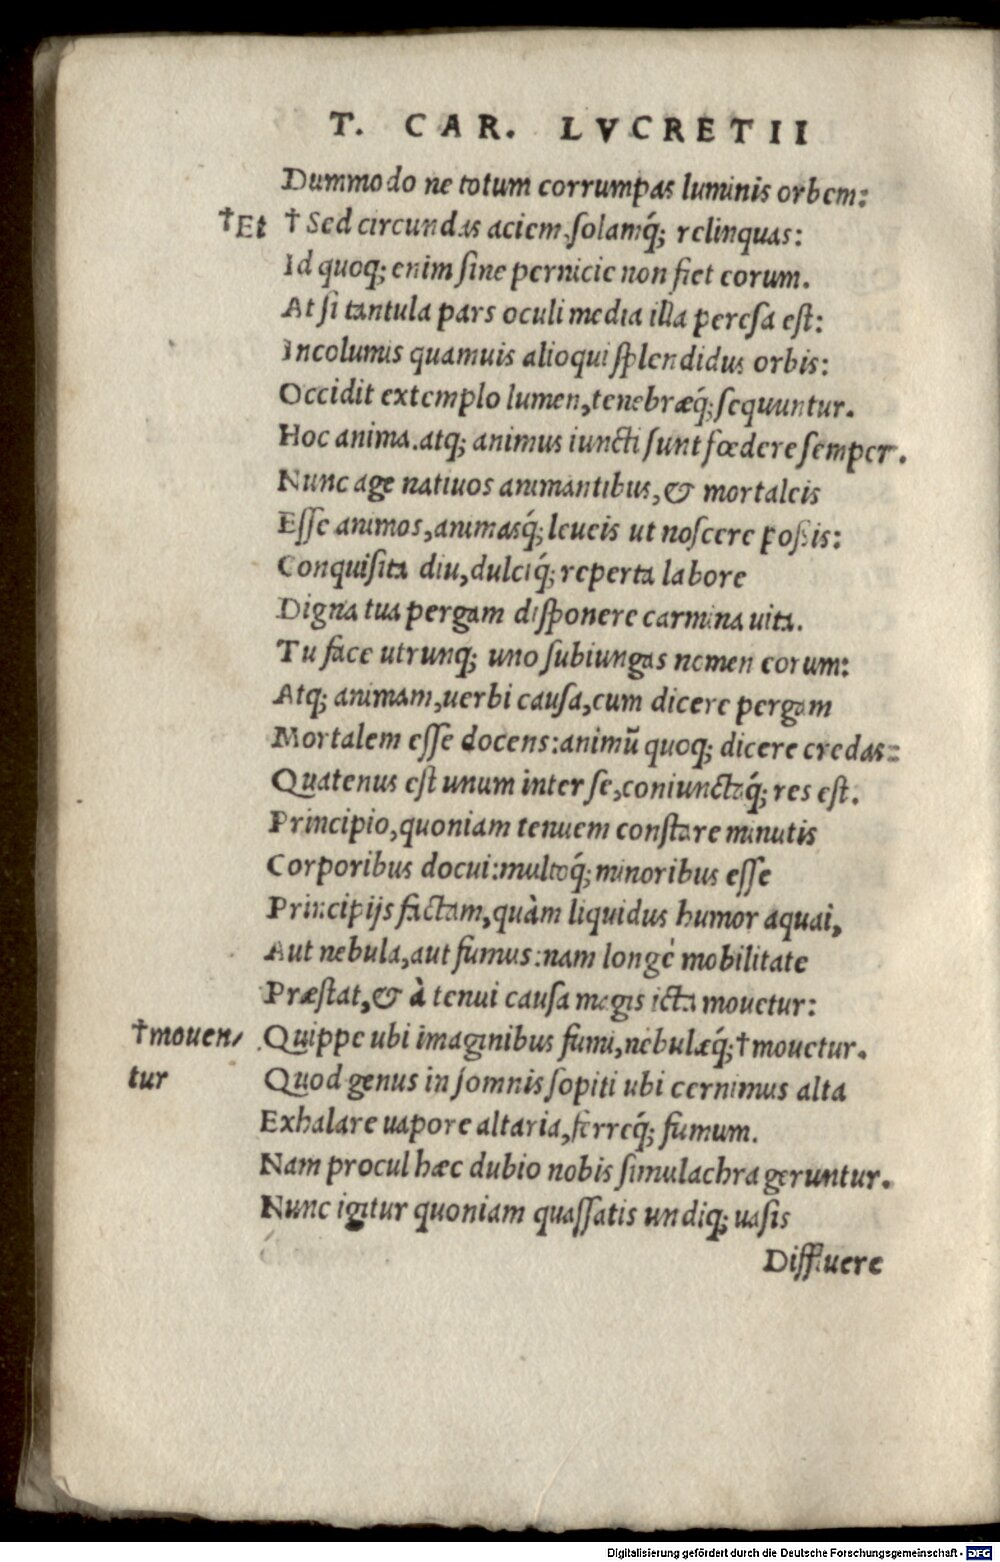 T. CAR. LVCRETII
Dummodo ne totum corrumpas luminis orbem:
†Et †Sed circundas aciem, ſolamq́; relinquas:
Id quoq; enim ſine pernicie non fiet eorum.
At ſi tantula pars oculi media illa pereſa eſt:
Incolumis quamuis alioqui ſplendidus orbis:
Occidit extemplo lumen, tenebræq́; ſequuntur.
Hoc anima. atq; animus iuncti ſunt fœdere ſemper.
Nunc age natiuos animantibus, & mortaleis
Eſſe animos, animasq́; leueis ut noſcere poßis:
Conquiſita diu, dulciq́; reperta labore
Digna tua pergam diſponere carmina uita.
Tu face utrunq; uno ſubiungas nomen eorum:
Atq; animam, uerbi cauſa, cum dicere pergam
Mortalem eſſe docens: animū quoq; dicere credas:
Quatenus eſt unum inter ſe, coniunctaq́; res eſt.
Principio, quoniam tenuem conſtare minutis
Corporibus docui: multoq́; minoribus eſſe
Principijs factam, quàm liquidus humor aquai,
Aut nebula, aut fumus: nam longè mobilitate
Præſtat, & à tenui cauſa magis icta mouetur:
†mouen/ Quippe ubi imaginibus fumi, nebulæq́; †mouetur.
tur Quod genus in ſomnis ſopiti ubi cernimus alta
Exhalare uapore altaria, ferreq́; fumum.
Nam procul hæc dubio nobis ſimulachra geruntur.
Nunc igitur quoniam quaſſatis undiq; uaſis
Diffluere
Digitalisierung gefördert durch die Deutsche Forschungsgemeinschaft - DFG